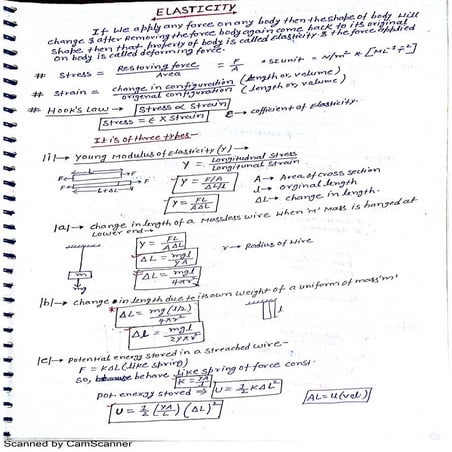 ELASTICITY
If we apply any force on any body then the shape of body will
change & after removing the force body again come back to its original
shape then that property of body is called elasticity & the force applied
on body is called deforming force.
# Stress = Restoring force / Area = F/A * SI unit = N/m² * [ML⁻¹T⁻²]
# Strain = change in configuration (length or, volume) / original configuration (length or, volume)
# Hook's Law → Stress ∝ Strain
Stress = E × Strain E → cofficient of elasticity.
It is of three types-
|i| → Young Modulus of Elasticity (Y) →
Y = Longitudnal Stress / Longitudnal Strain
Y = F/A / ΔL/l A → Area of cross section
l → orginal length
Y = FL / AΔL ΔL → change in length.
|a| → change in length of a Massless wire when 'm' Mass is hanged at
Lower end →
Y = FL / AΔL
ΔL = mgl / YA r → Radius of Wire
ΔL = mgl / Yπr²
m
mg
|b| → change in length due to its own weight of a uniform of mass 'm'
ΔL = mg(l/2) / Yπr²
Δl = mgl / 2Yπr²
|c| → Potential energy stored in a streached wire-
F = KΔL (like spring)
So, behave like spring of force const.
K = YA / l
pot. energy stored ⇒ U = 1/2 KΔL²
U = 1/2 (YA / L) (ΔL)²
AL = V (vol.)
Scanned by CamScanner